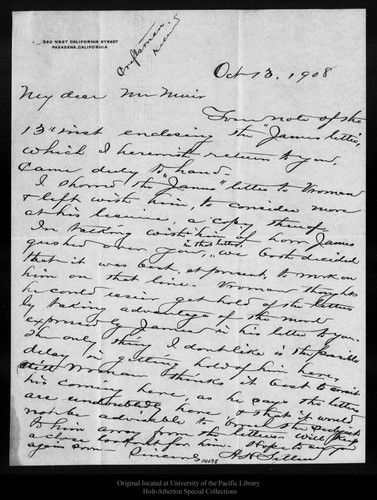 380 WEST CALIFORNIA STREET
PASADENA, CALIFORNIA
Craftsman
Oct 13, 1908
My dear Mr Muir
Your note of the
13th inst enclosing the "James letter",
which I herewith return to you,
came duly to hand.
I showed the "James" letter to Vroman
& left with him, to consider more
at his leisure, a copy thereof
In talking with him of how James
gushed over you, in that letter, we both decided
that it was best, at present, to work on
him on that line. Vroman thought
he could easier get hold of the letters
by taking advantage of the mood
expressed by James in his letter to you.
The only thing I don't like is the possible
delay in getting hold of him here,
still Vroman thinks it best to await
his coming here, as he says the letters
are undoubtedly here & that it would
not be advisable to bring the subject
to him away from the letters will keep
a close lookout for him. Hope to see you
again soon Sincerely
A. H. Sellers
04498
Original located at University of the Pacific Library
Holt-Atherton Special Collections